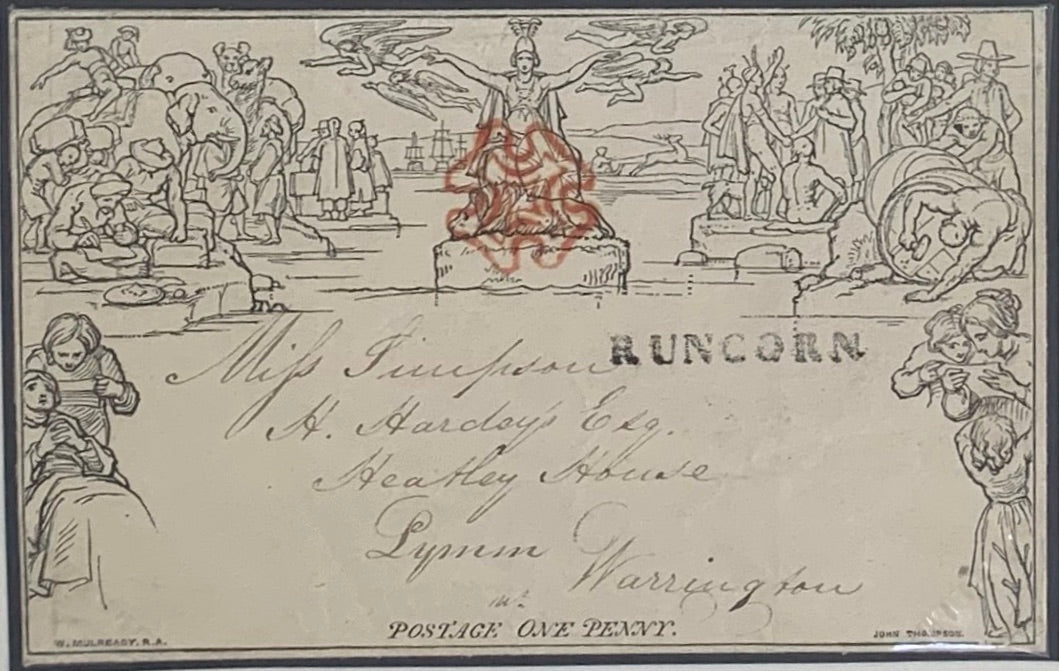 RUNCORN
Miſs Timpson
H. Hardey's Esq.
Heatley House
Lymm
Warrington
POSTAGE ONE PENNY.
W. MULREADY, R.A.
JOHN THOMPSON.